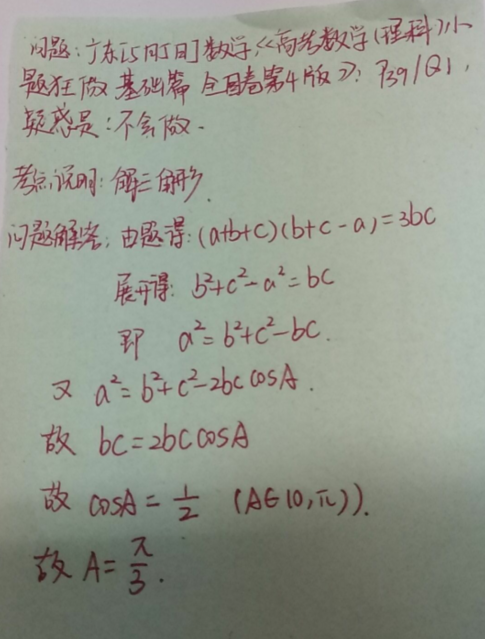 问题:广东[5月5日]数学,《高考数学(理科)小
题狂做 基础篇 全国卷第4版》:P39/Q1,
疑惑是:不会做.
考点说明:解三角形.
问题解答:由题得:(a+b+c)(b+c-a)=3bc
展开得:b²+c²-a²=bc
即 a²=b²+c²-bc.
又 a²=b²+c²-2bc cosA.
故 bc=2bc cosA
故 cosA=1/2 (A∈(0,π)).
故 A=π/3.